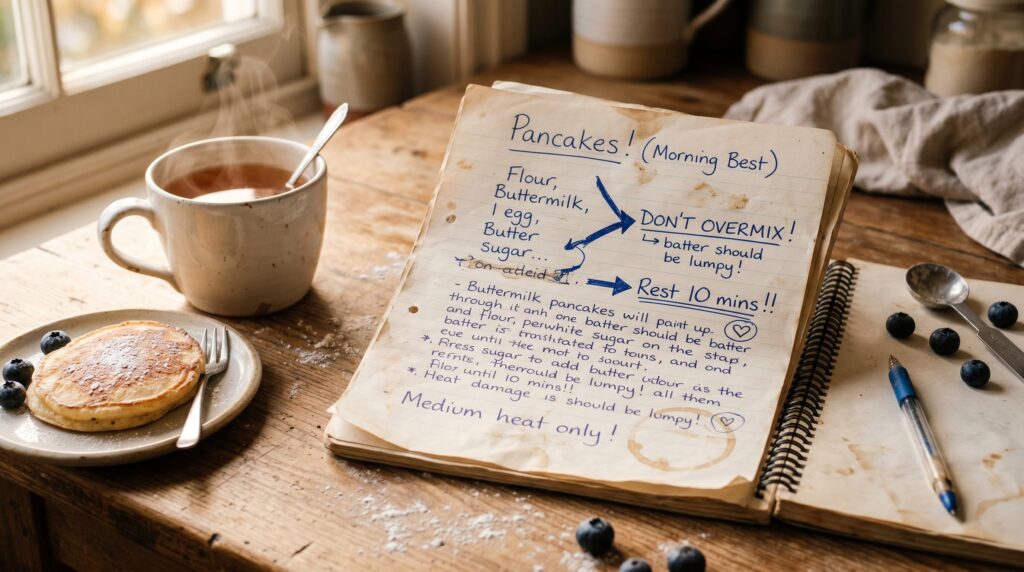 Pancakes! (Morning Best)
Flour,
Buttermilk,
1 egg,
Butter
sugar...
DON'T OVERMIX!
↳ batter should
be lumpy!
Rest 10 mins!!
- Buttermilk pancakes will up.
through it anh one batter should be batter
and flour, perwhite sugar on the stap,
batter is to tons, and ond
eve until the mot to
* Rress sugar to add butter as the
be lumpy! all them
* until 10 mins!!
Heat damage is should be lumpy!
Medium heat only!